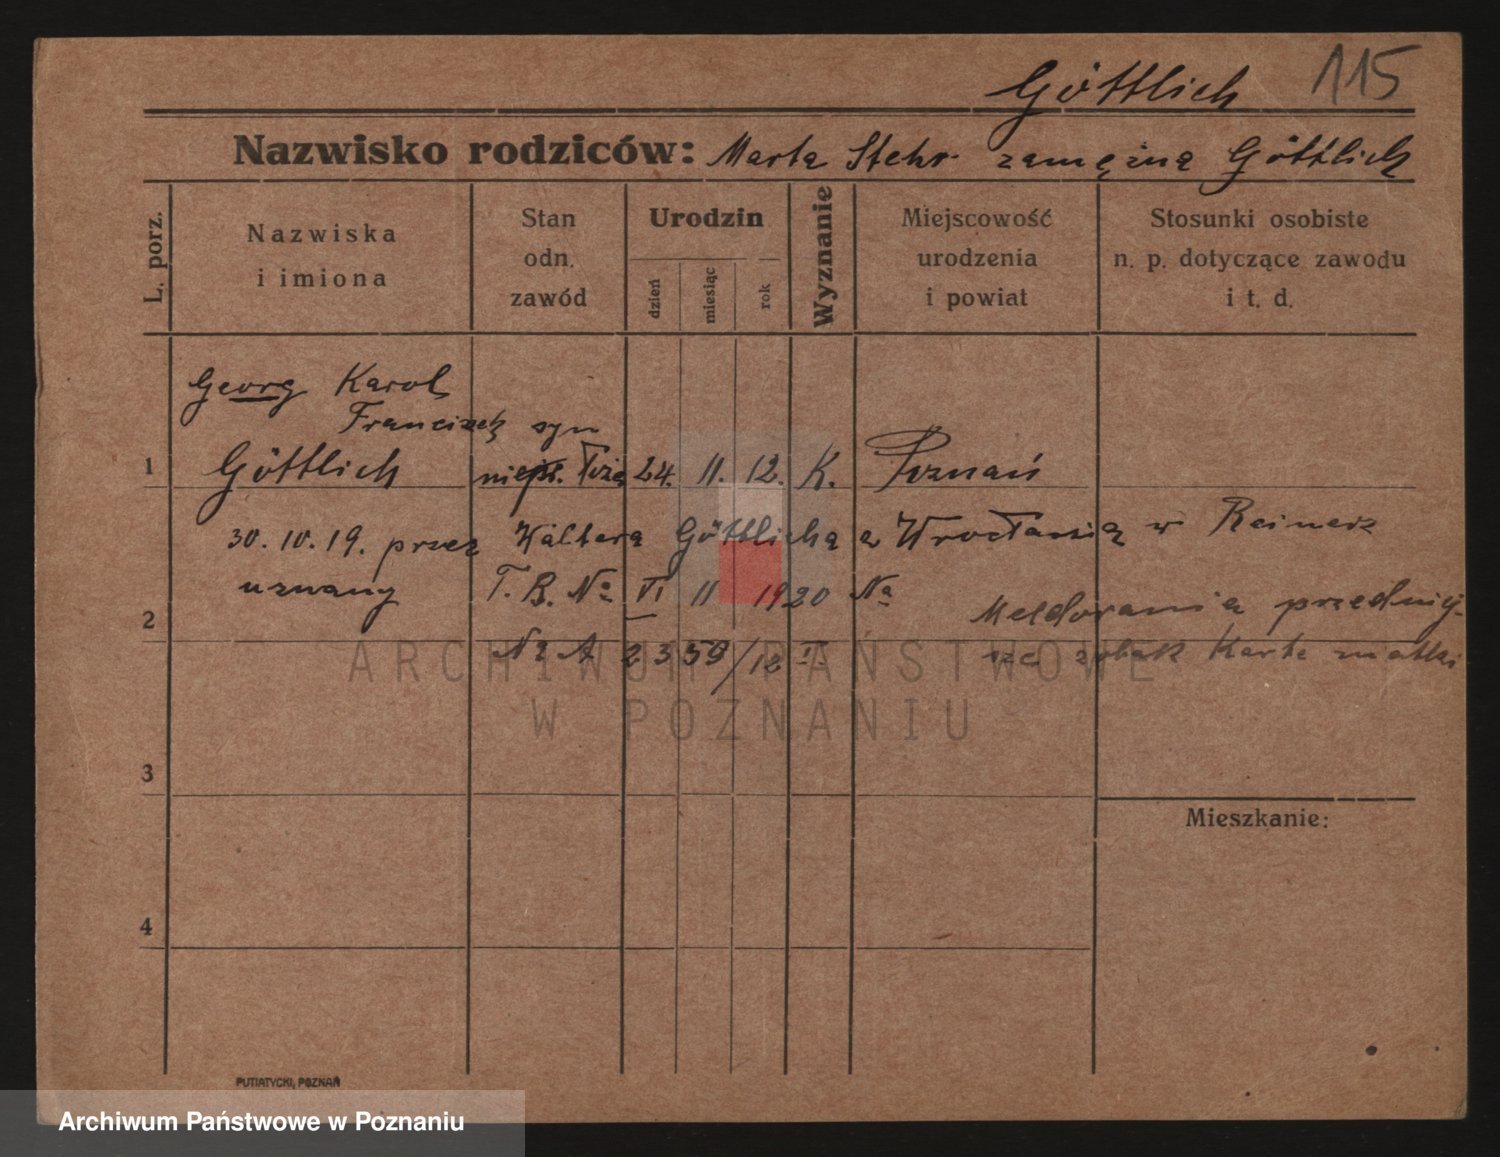 115
Göttlich
Nazwisko rodziców: Marta Stehr zamężna Göttlich
L. porz.
Nazwiska
i imiona
Stan
odn.
zawód
Urodzin
dzień
miesiąc
rok
Wyznanie
Miejscowość
urodzenia
i powiat
Stosunki osobiste
n. p. dotyczące zawodu
i t. d.
Georg Karol
Franciszek syn
1 Göttlich 24. 11. 12. K. Poznań
30. 10. 19. przez Waltera Göttlicha z Wrocławia w Reinerz
uznany T. B. No VI 11 1920 Na
2 Meldowania przedniej-
No A 2359/12 II. sze zobak Karte matki
ARCHIWUM PAŃSTWOWE
W POZNANIU
3
Mieszkanie:
4
PUTIATYCKI, POZNAŃ
Archiwum Państwowe w Poznaniu